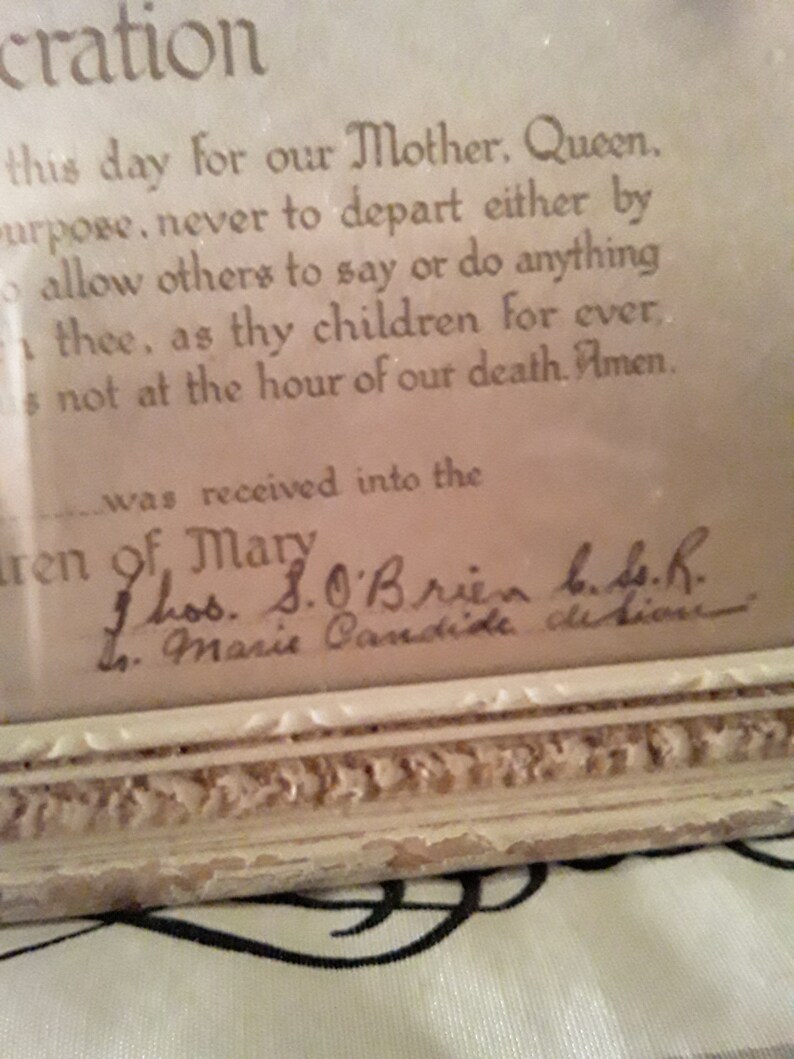 cration
this day for our Mother, Queen,
urpose, never to depart either by
o allow others to say or do anything
n thee, as thy children for ever,
us not at the hour of our death. Amen.
was received into the
ren of Mary
Thos. S. O'Brien C.Ss.R.
Sr. Marie Candide de Sion